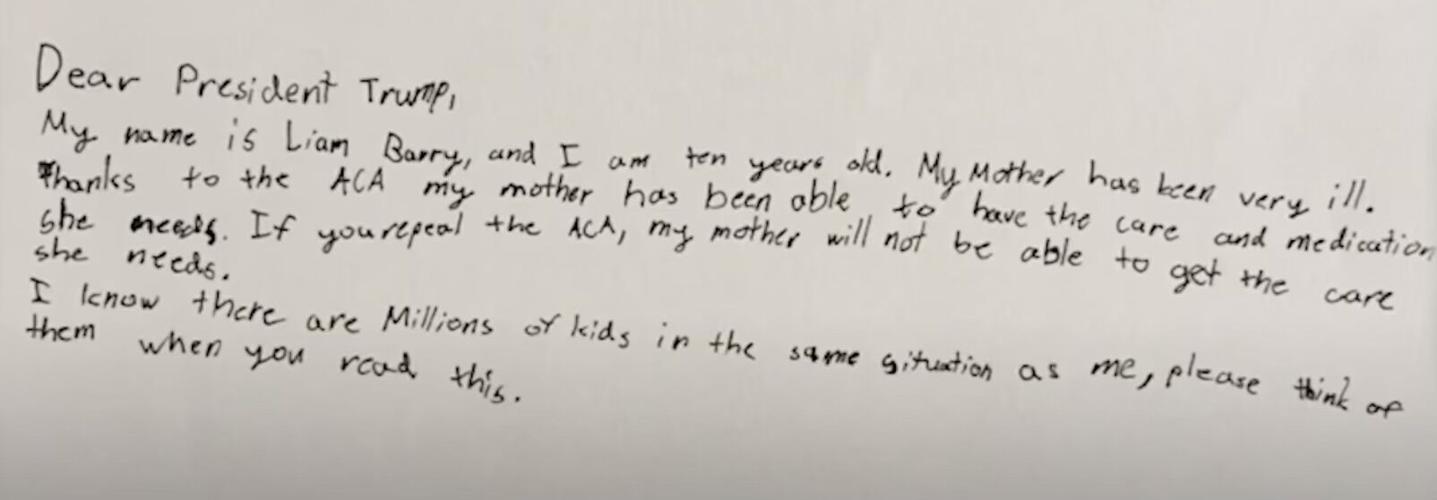 Dear President Trump,
My name is Liam Barry, and I am ten years old. My Mother has been very ill.
Thanks to the ACA my mother has been able to have the care and medication
she needs. If you repeal the ACA, my mother will not be able to get the care
she needs.
I know there are Millions of kids in the same situation as me, please think of
them when you read this.